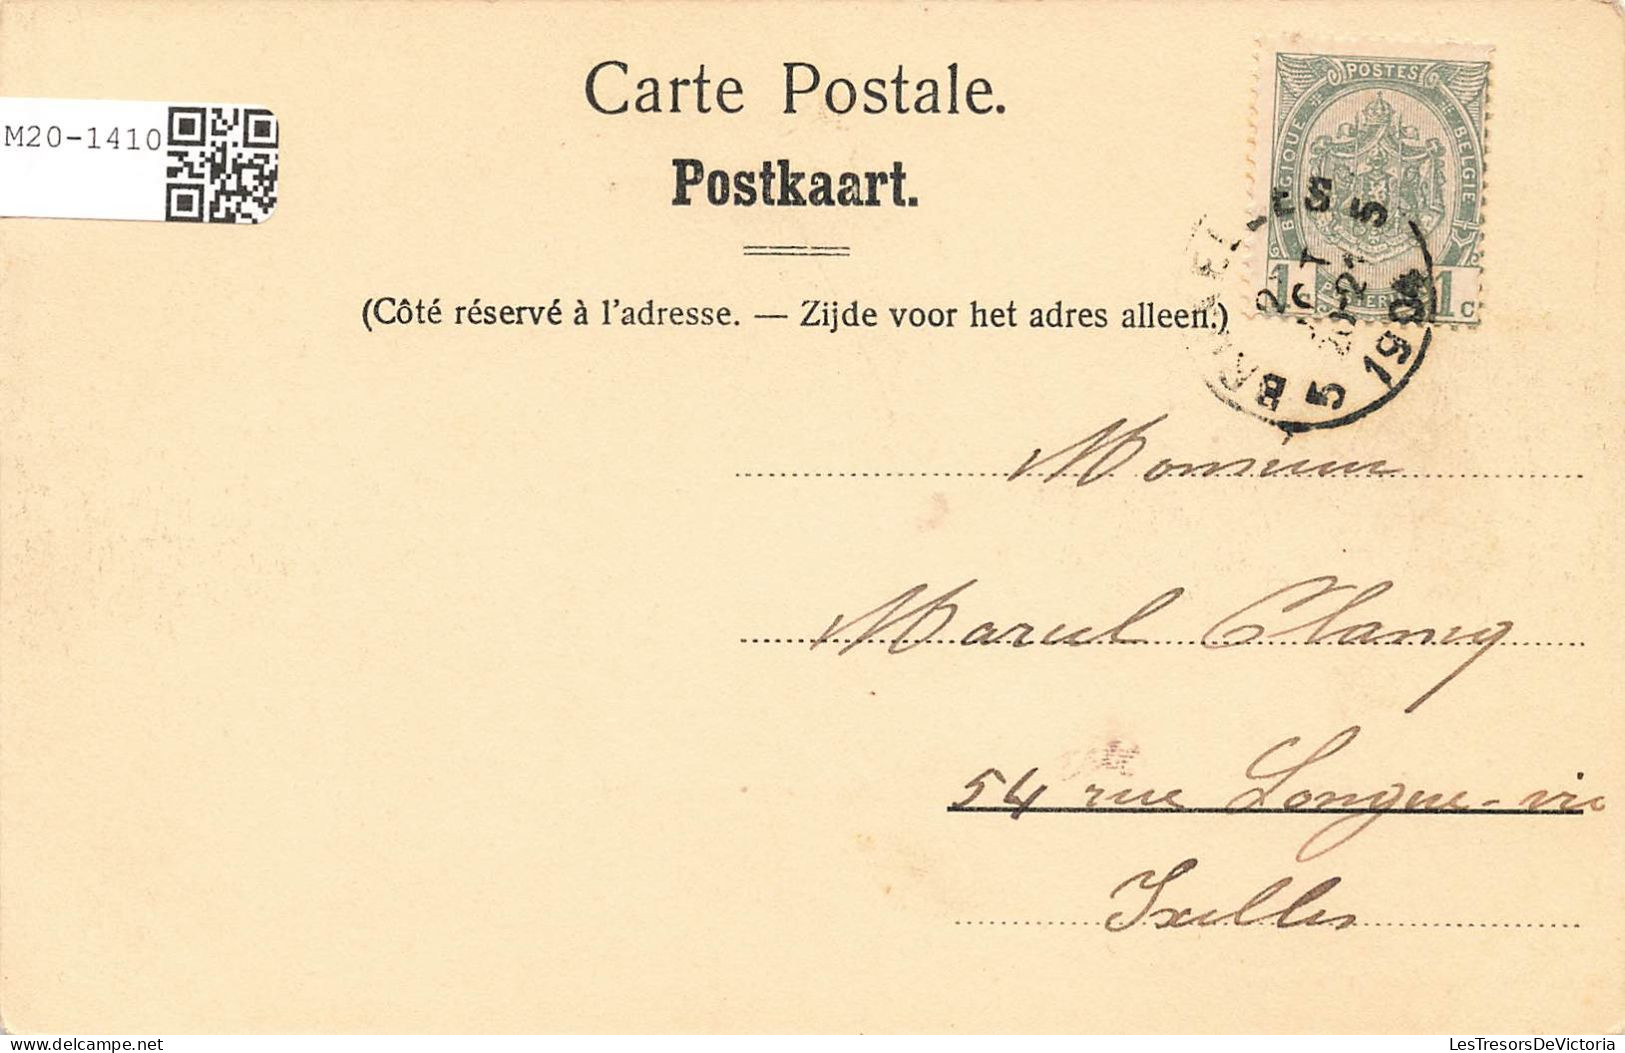 Carte Postale.
Postkaart.
(Côté réservé à l'adresse. — Zijde voor het adres alleen.)
M20-1410
POSTES
BELGIQUE
BELGIE
1c 1c
2 OCT 5
1904
5
Monsieur
Marcel
54 rue Longue-vie
Ixelles
LesTresorsDeVictoria
delcampe.net